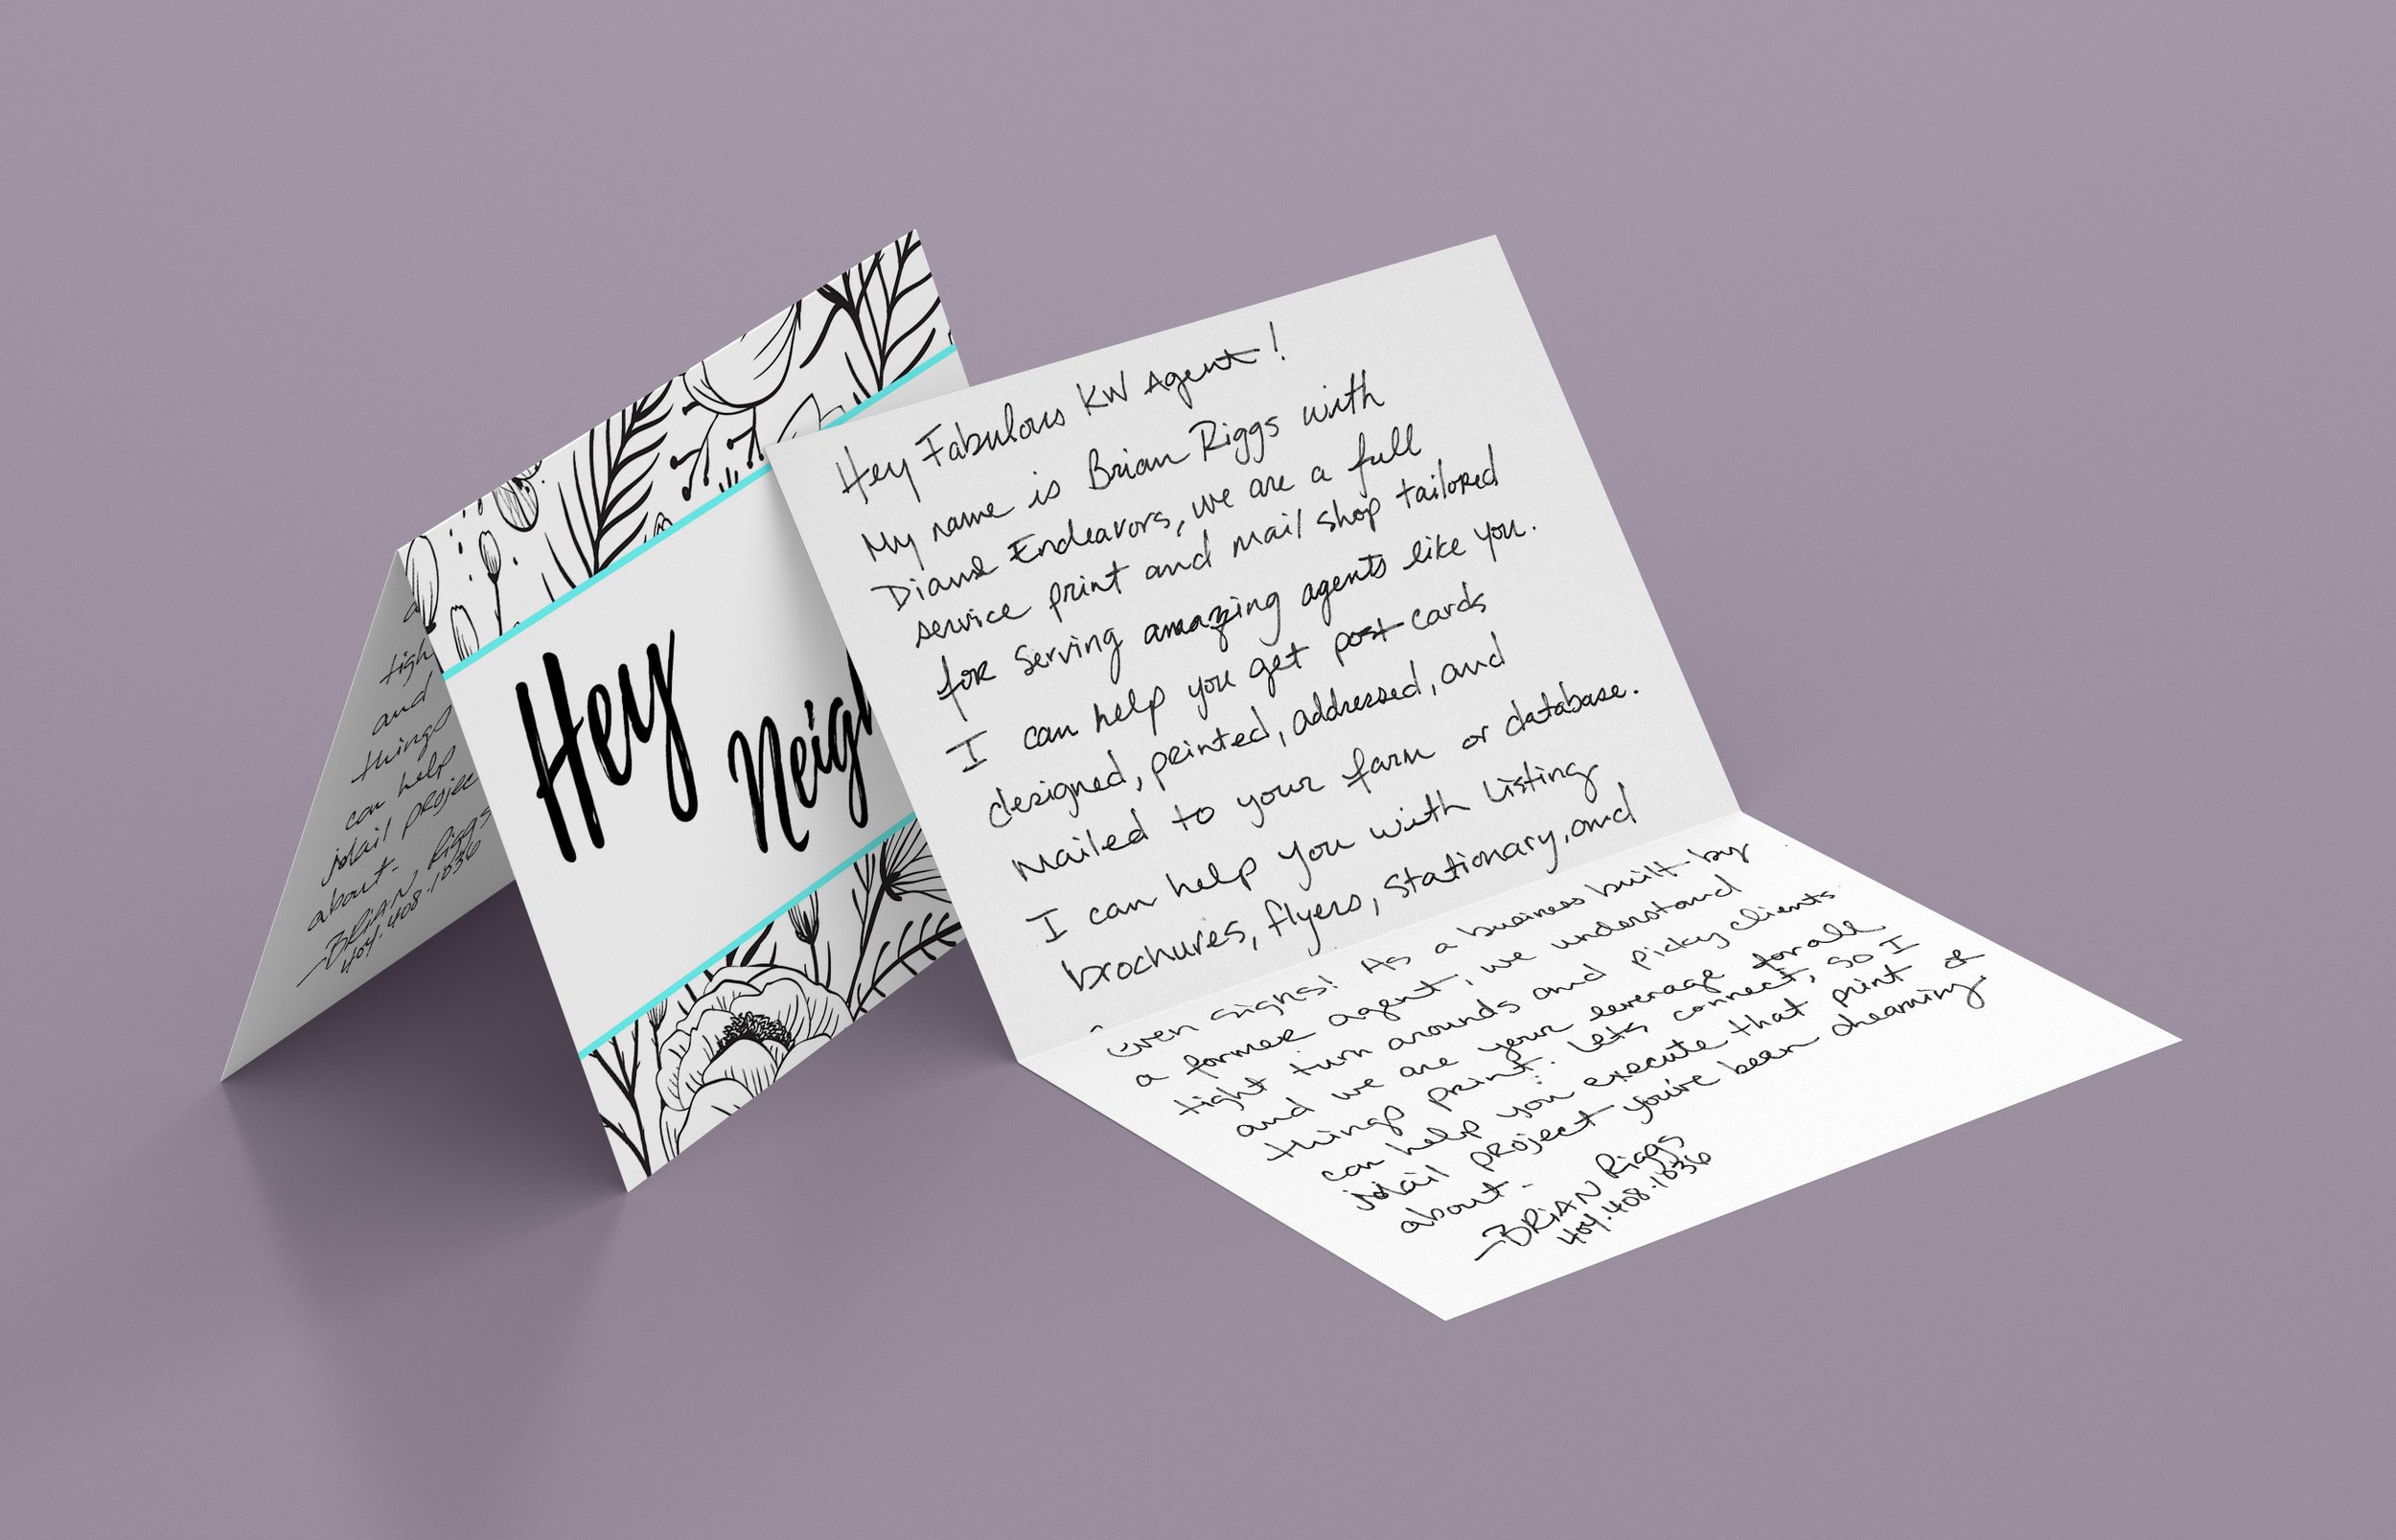 Hey
Neigh
tigh
and
things
can help
Mail projec
about.
-BRIAN Riggs
404.408.1836
Hey Fabulous KW Agent!
My name is Brian Riggs with
Diane Endeavors, we are a full
service print and mail shop tailored
for serving amazing agents like you.
I can help you get post cards
designed, printed, addressed, and
Mailed to your farm or database.
I can help you with Listing
brochures, flyers, stationary, and
even signs! As a business built by
a former agent, we understand
tight turn arounds and picky clients
and we are your leverage for all
things print. Lets connect, so I
can help you execute that print or
Mail project you've been dreaming
about.
-BRIAN Riggs
404.408.1836